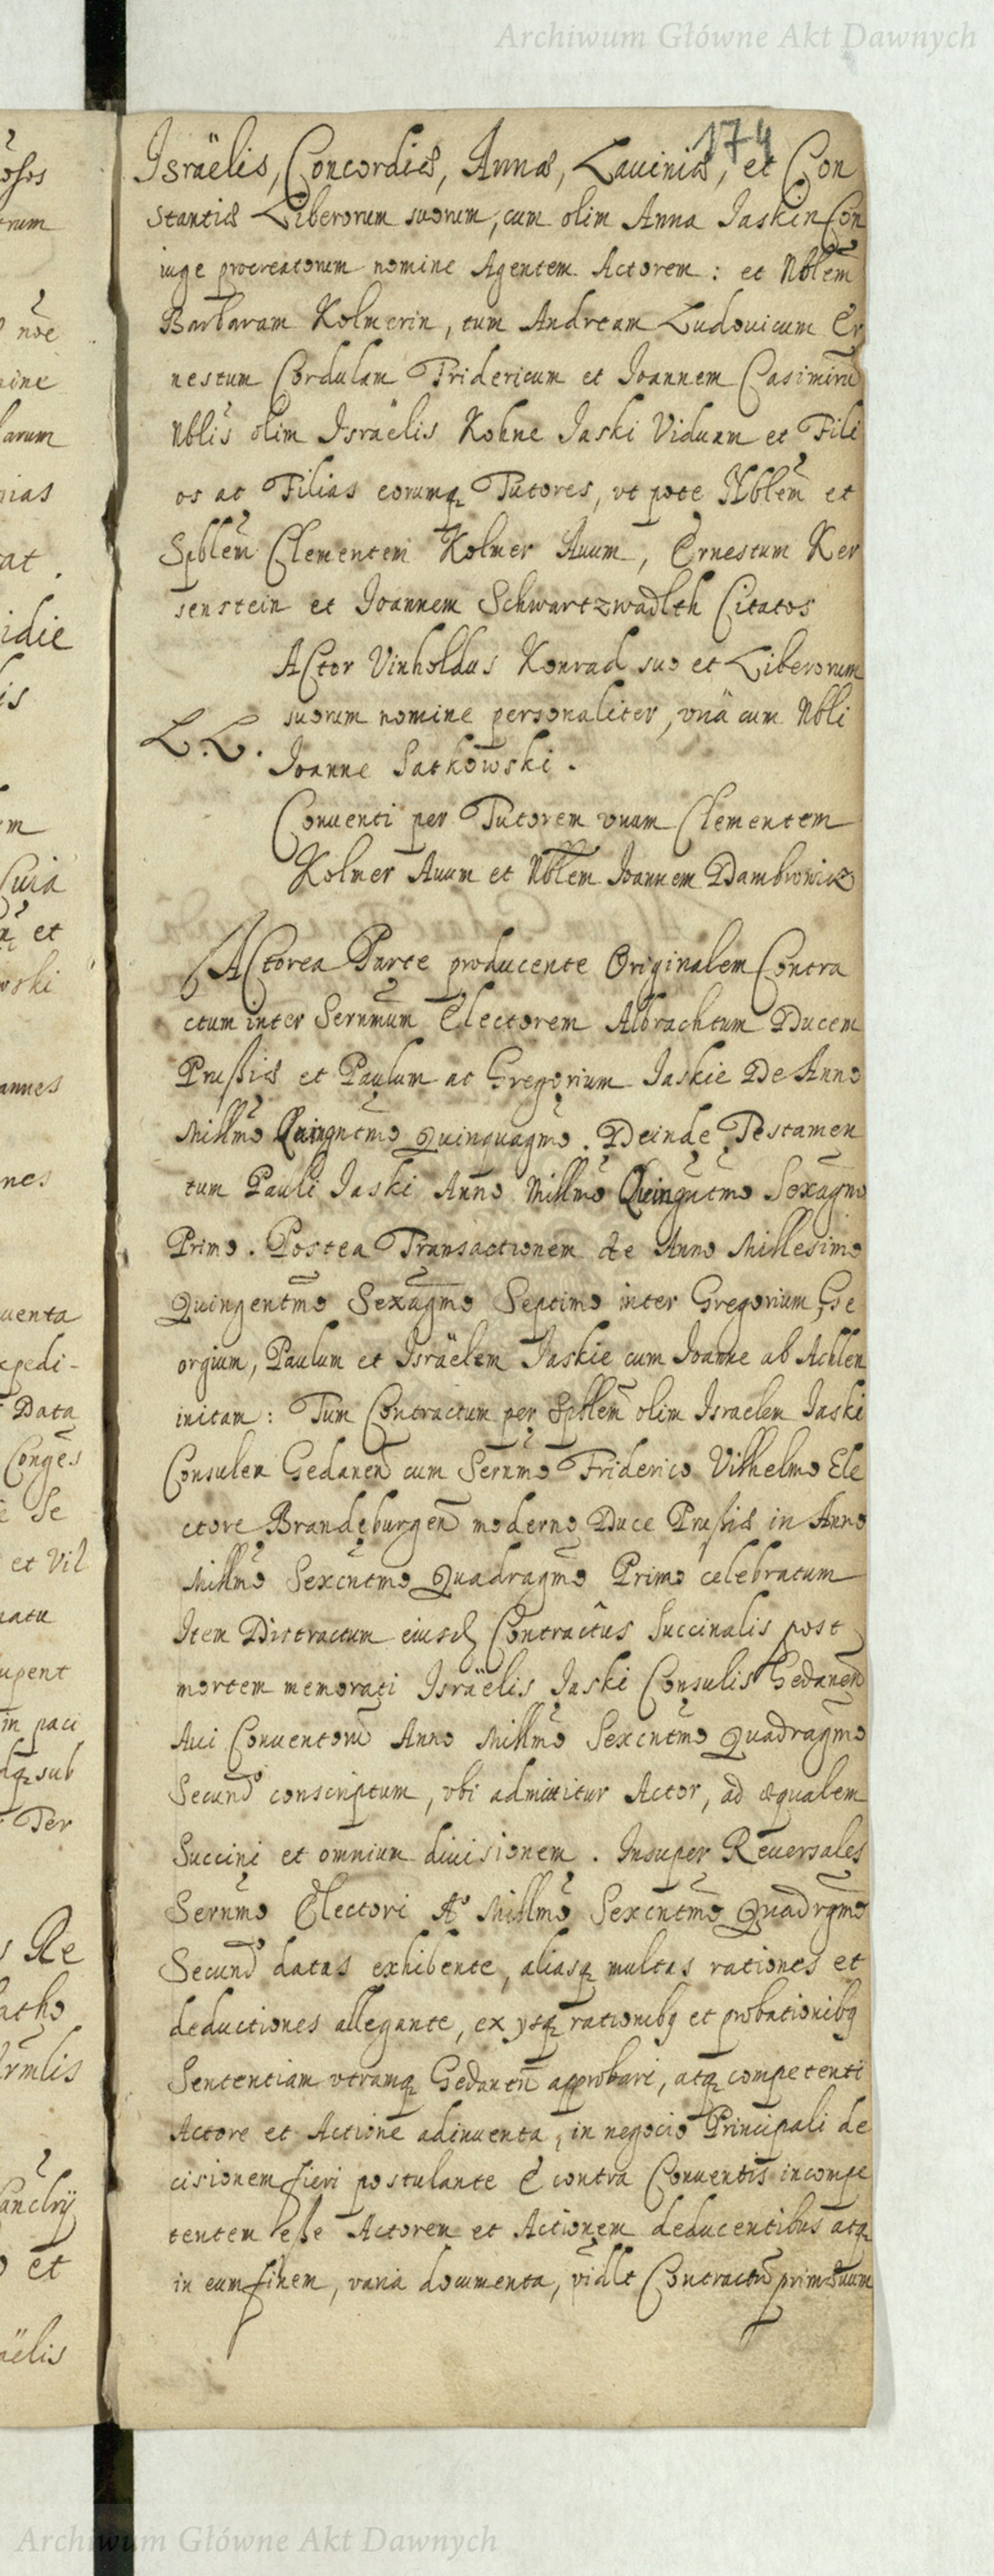 Archiwum Główne Akt Dawnych
174
Israëlis, Concordiæ, Annæ, Lauiniæ, et Con
stantiæ Liberorum suorum, cum olim Anna Iaskin Con
iuge procreatorum nomine Agentem Actorem : et Nblem
Barbaram Kolmerin, tum Andream Ludouicum Er
nestum Cordulam Fridericum et Ioannem Casimirũ
Nblis olim Israëlis Kohne Iaski Viduam et Fili
os ac Filias eorumq Tutores, vt pote Nblem et
Spblem Clementem Kolmer Auum, Ernestum Ker
senstein et Ioannem Schwartzwadlth Citatos
Actor Vinholdus Konrad suo et Liberorum
suorum nomine personaliter, vnà cum Nbli
L.L.
Ioanne Satkowski.
Conuenti per Tutorem vnum Clementem
Kolmer Auum et Nblem Ioannem Dambrowicz
Actorea Parte producente Originalem Contra
ctum inter Sernmum Electorem Albrachtum Ducem
Prußiæ et Paulum ac Gregorium Iaskie De Anno
Millmo Quingntmo Quinquagmo. Deinde Testamen
tum Pauli Iaski Anno Millmo Quingntmo Sexagmo
Primo. Postea Transactionem de Anno Millesimo
Quingentmo Sexagmo Septimo inter Gregorium Ge
orgium, Paulum et Israëlem Iaskie cum Ioanne ab Achlen
initam : Tum Contractum per Spblem olim Israelem Iaski
Consulem Gedanen cum Sernmo Friderico Vilhelmo Ele
ctore Brandeburgen moderno Duce Prußiæ in Anno
Millmo Sexcntmo Quadragmo Primo celebratum
Item Distractum eiusd Contractûs Succinalis post
mortem memorati Israëlis Iaski Consulis Gedanen
Aui Conuentorũ Anno Millmo Sexcntmo Quadragmo
Secundo conscriptum, vbi admittitur Actor, ad æqualem
Succini et omnium diuisionem. Insuper Reuersales
Sernmo Electori Aº Millmo Sexcntmo Quadrgmo
Secundo datas exhibente, aliasq multas rationes et
deductiones allegante, ex ysq rationibq et probationibq
Sententiam vtramq Gedanen approbari, atq competenti
Actore et Actione adinuenta, in negocio Principali de
cisionem fieri postulante E contra Conuentis incompe
tentem eße Actorem et Actionem deducentibus atq
in eum finem, varia documenta, vidlt Contractũ primæuum
Archiwum Główne Akt Dawnych